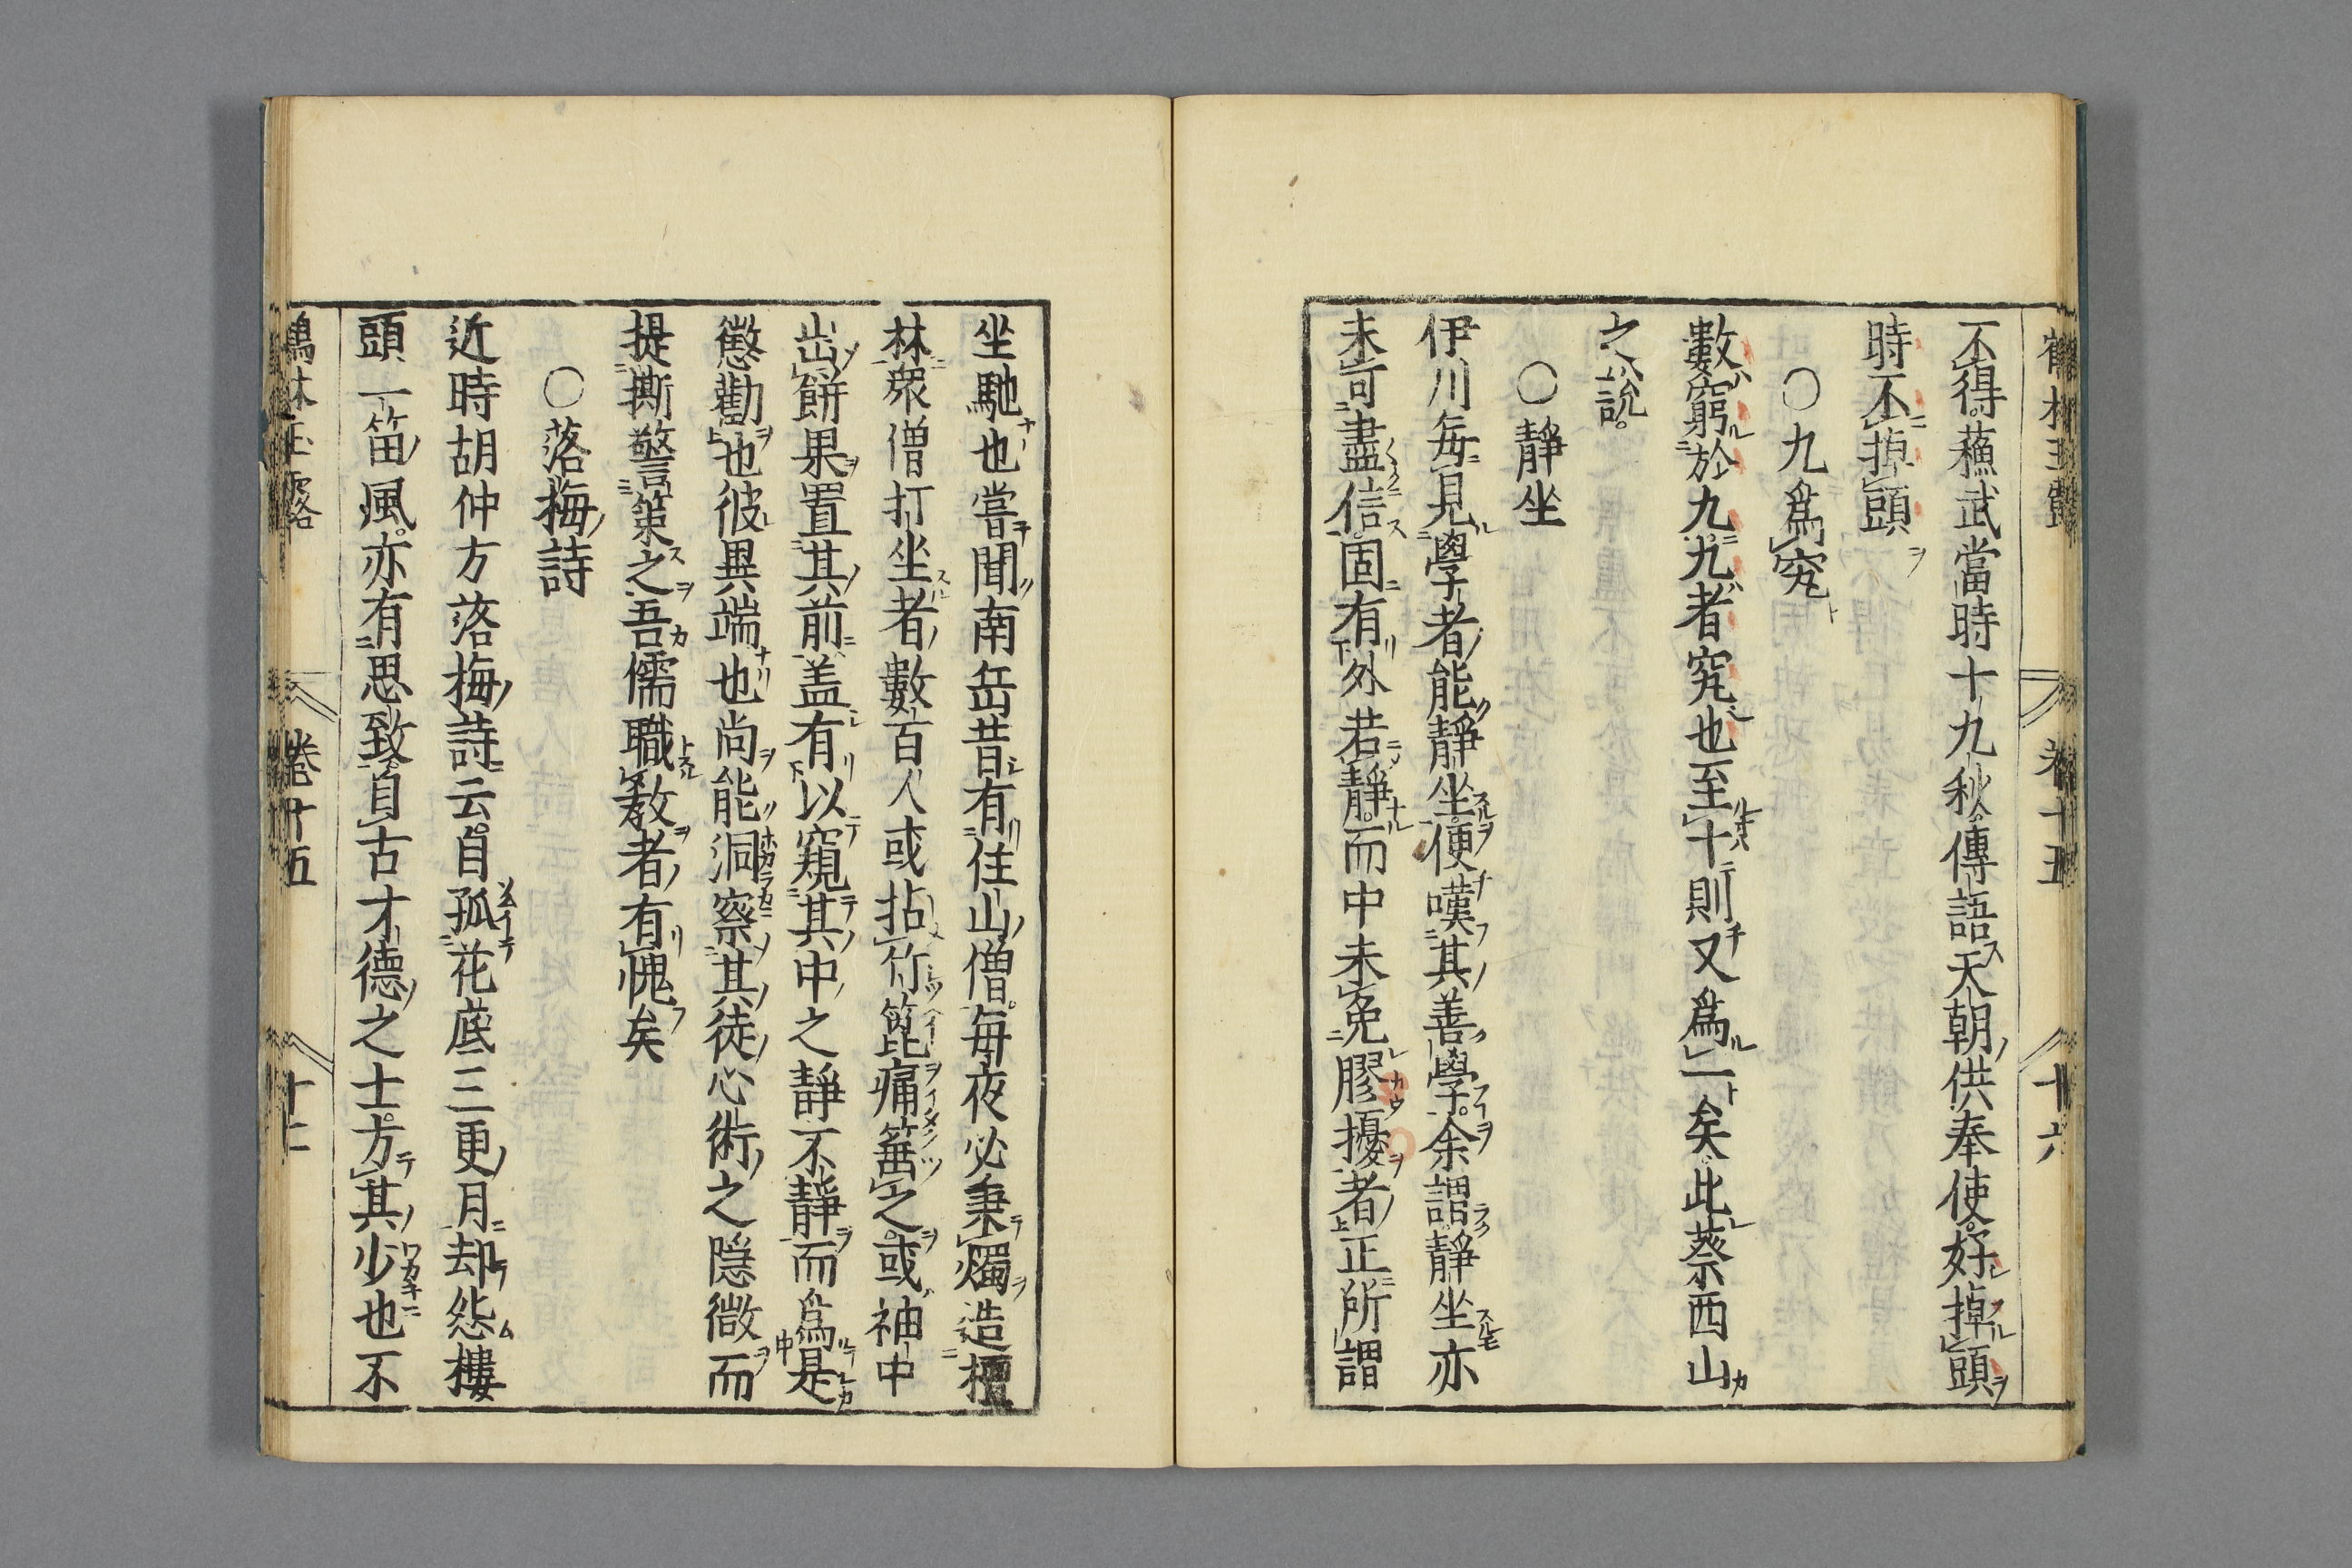 鶴林玉露 卷十五 十六
不得蘓武當時十九秋傳語天朝供奉使好掉頭
時不掉頭
〇九爲究
數窮於九九者究也至十則又爲一矣此蔡西山
之說
〇靜坐
伊川每見學者能靜坐便嘆其善學余謂靜坐亦
未可盡信固有外若靜而中未免膠擾者正所謂
坐馳也嘗聞南岳昔有住山僧每夜必秉燭造檀
林衆僧打坐者數百人或拈竹篦痛箠之或袖中
出餅果置其前盖有以窺其中之靜不靜而爲是
懲勸也彼異端也尚能洞察其徒心術之隱微而
提撕警策之吾儒職敎者有愧矣
〇落梅詩
近時胡仲方落梅詩云自孤花底三更月却怨樓
頭一笛風亦有思致自古才德之士方其少也不
鶴林玉露 卷十五 十二